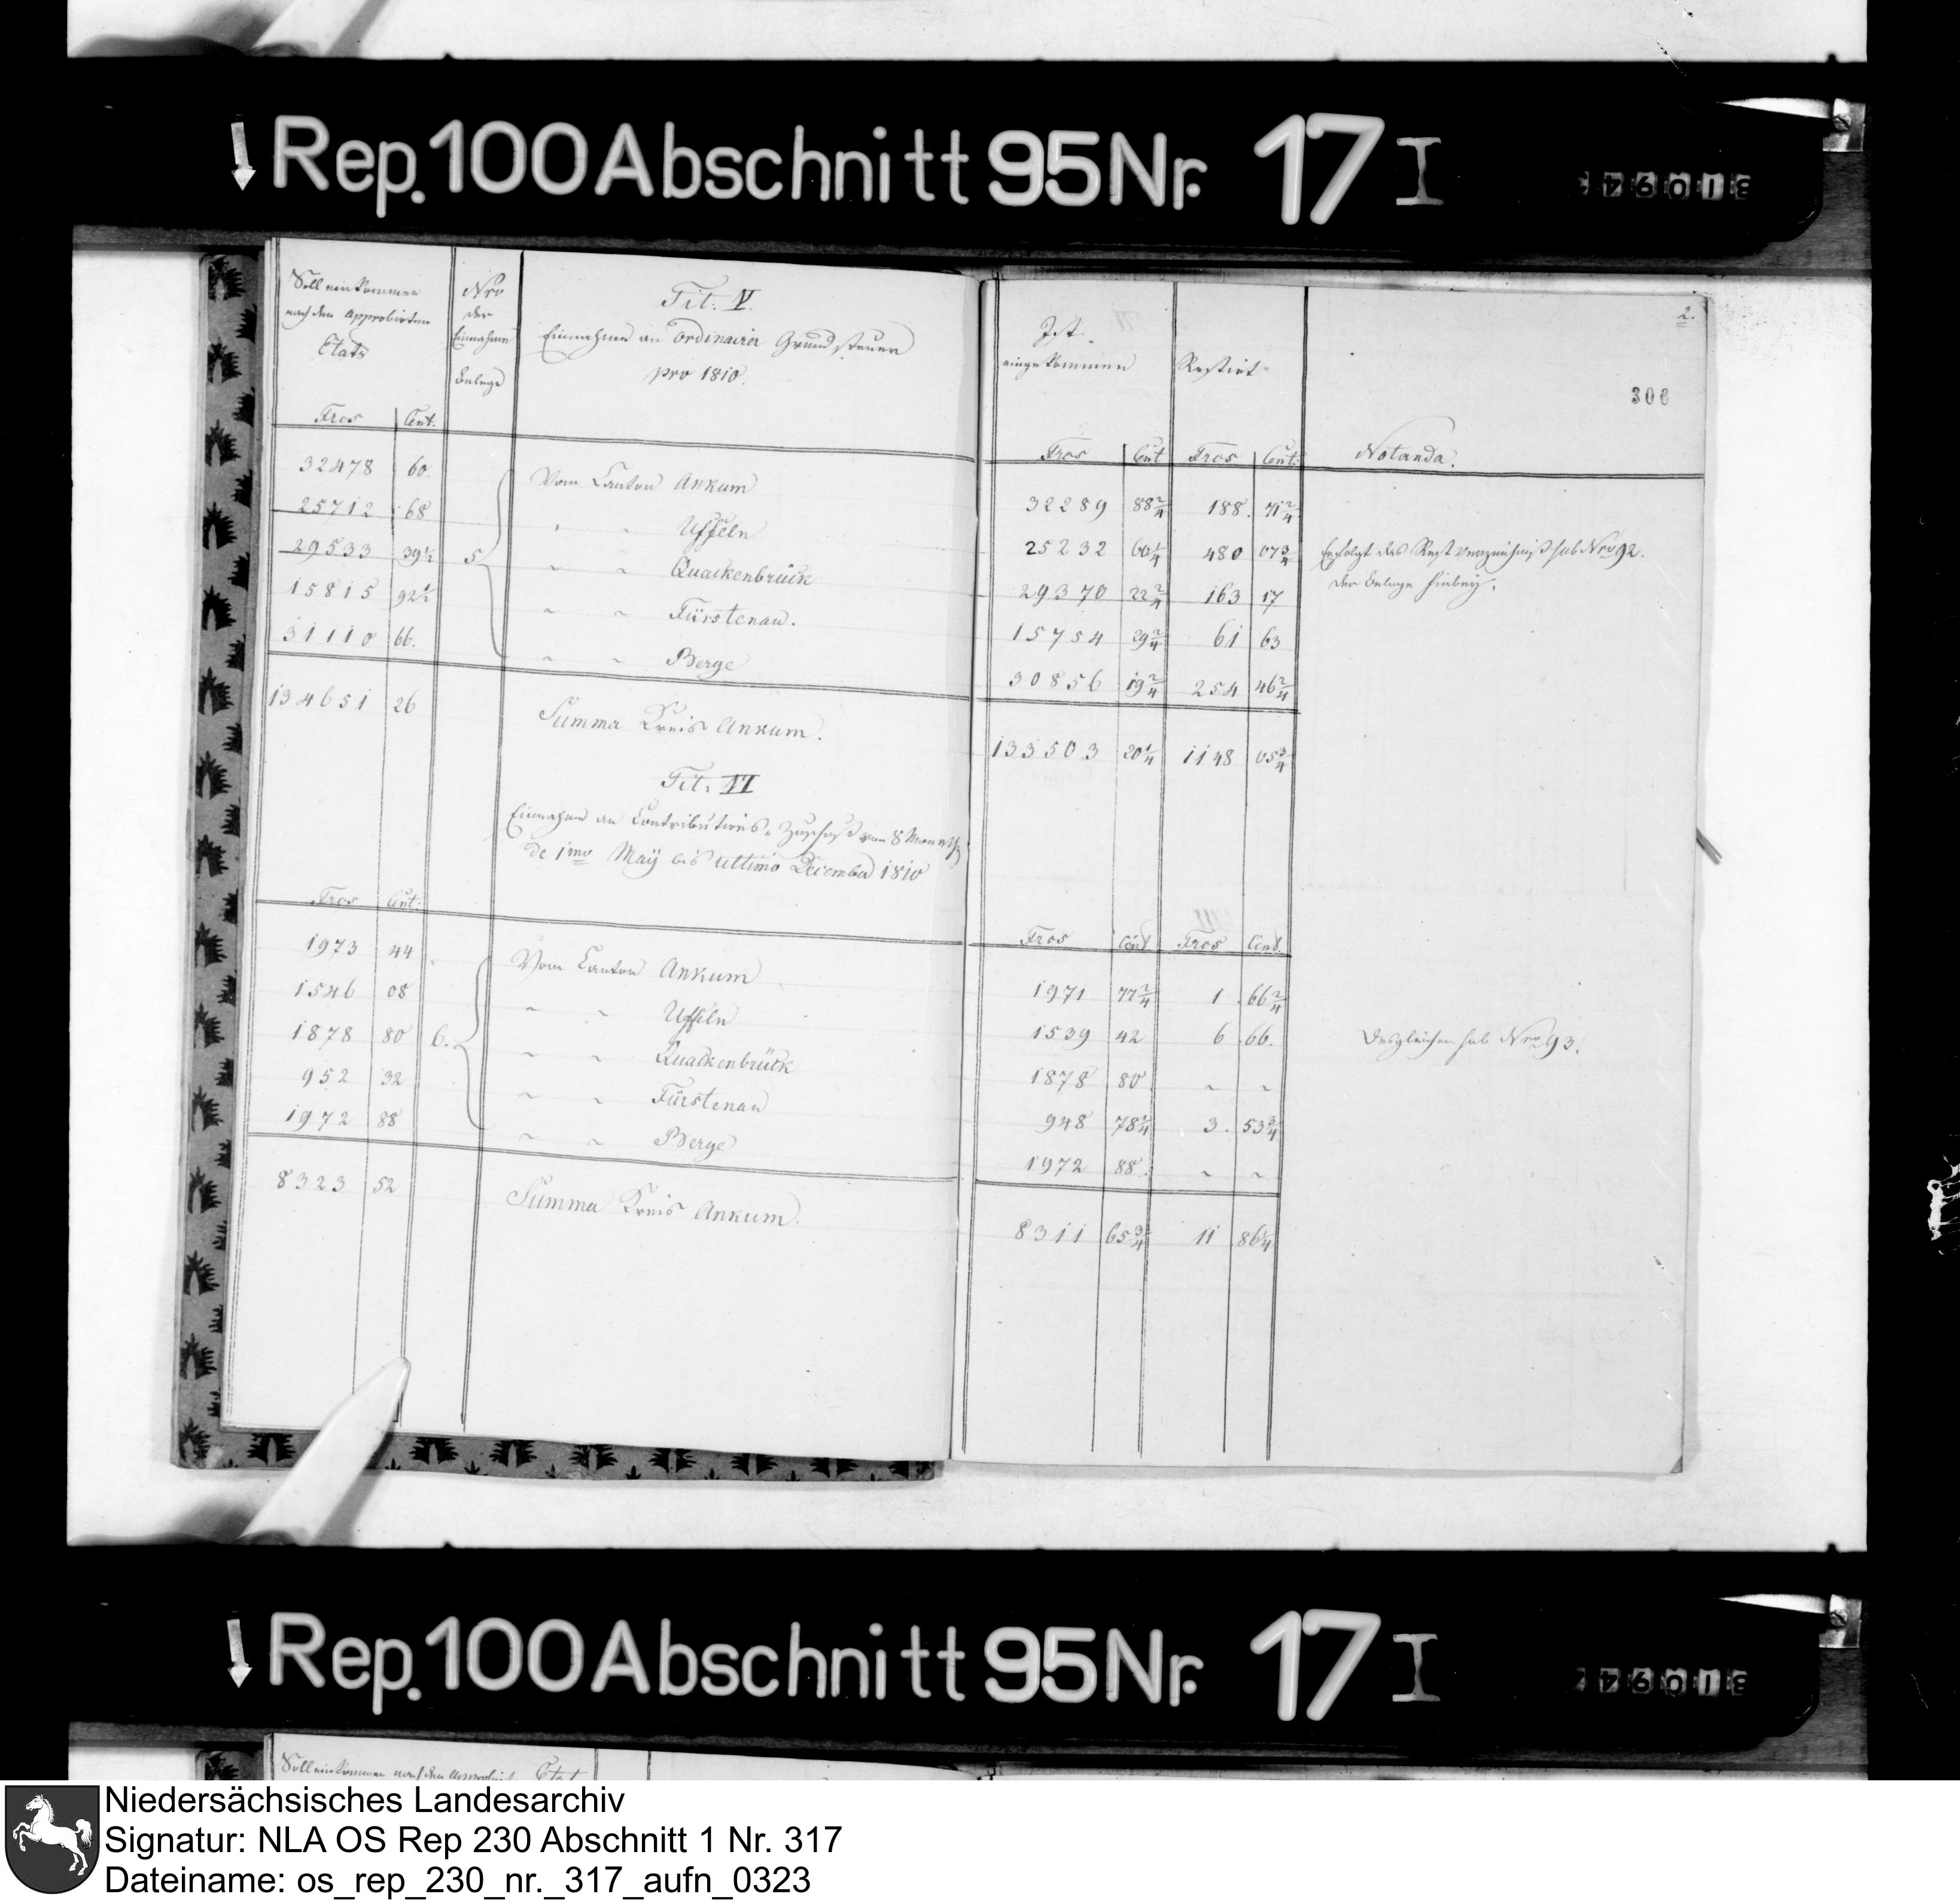 Rep. 100 Abschnitt 95 Nr. 17 I
310942
Soll einkommen
nach den Approbirten
Etats
Nro
der
Einnahme
Belege
Tit. V.
Einnahme an Ordinairer Grundsteuer
pro 1810.
Ist
eingekommen
Restirt
2.
306
Frcs Cent.
Frcs Cent Frcs Cent. Notanda.
32478 60. Vom Canton Ankum 32289 88 2/4 188. 71 2/4
25712 68 " " Uffeln 25232 60 1/4 480 07 3/4 Erfolgt das Restverzeichniß sub Nro 92.
29533 39 1/2 5 " " Quackenbrück 29370 22 2/4 163 17 der Belege hiebey.
15815 92 1/2 " " Fürstenau. 15754 29 2/4 61 63
31110 66. " " Berge 30856 19 2/4 254 46 2/4
134651 26 Summa Kreis Ankum. 133503 20 1/4 1148 05 3/4
Tit. VI
Einnahme an Contributions-Zuschuß von 8 Monath
de 1mo Maÿ bis ultimo December 1810
Frcs Cent. Frcs Cent Frcs Cent.
1973 44 Vom Canton Ankum 1971 77 2/4 1 66 2/4
1546 08 " " Uffeln 1539 42 6 66. Desgleichen sub Nro 93.
1878 80 6. " " Quackenbrück 1878 80 " "
952 32 " " Fürstenau 948 78 1/4 3. 53 3/4
1972 88 " " Berge 1972 88. " "
8323 52 Summa Kreis Ankum. 8311 65 3/4 11 86 1/4
Rep. 100 Abschnitt 95 Nr. 17 I
310942
Soll einkommen nach den Approbirt. Etat
Niedersächsisches Landesarchiv
Signatur: NLA OS Rep 230 Abschnitt 1 Nr. 317
Dateiname: os_rep_230_nr._317_aufn_0323